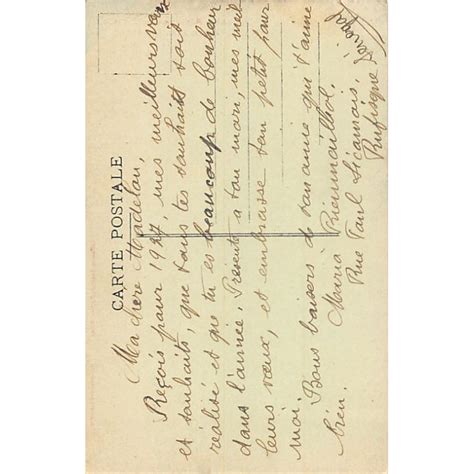 CARTE POSTALE
Ma chère Madelon,
Reçois pour 1927, mes meilleurs vœux
et souhaits, que tous tes souhaits soit
réalisé et que tu es beaucoup de bonheur
dans l'année. Présente à ton mari, mes meil
leurs vœux, et embrasse ton petit pour
moi.
Bons baisers d'une amie qui t'aime
bien.
Maria
Rue Paul
Rufisque
Sénégal